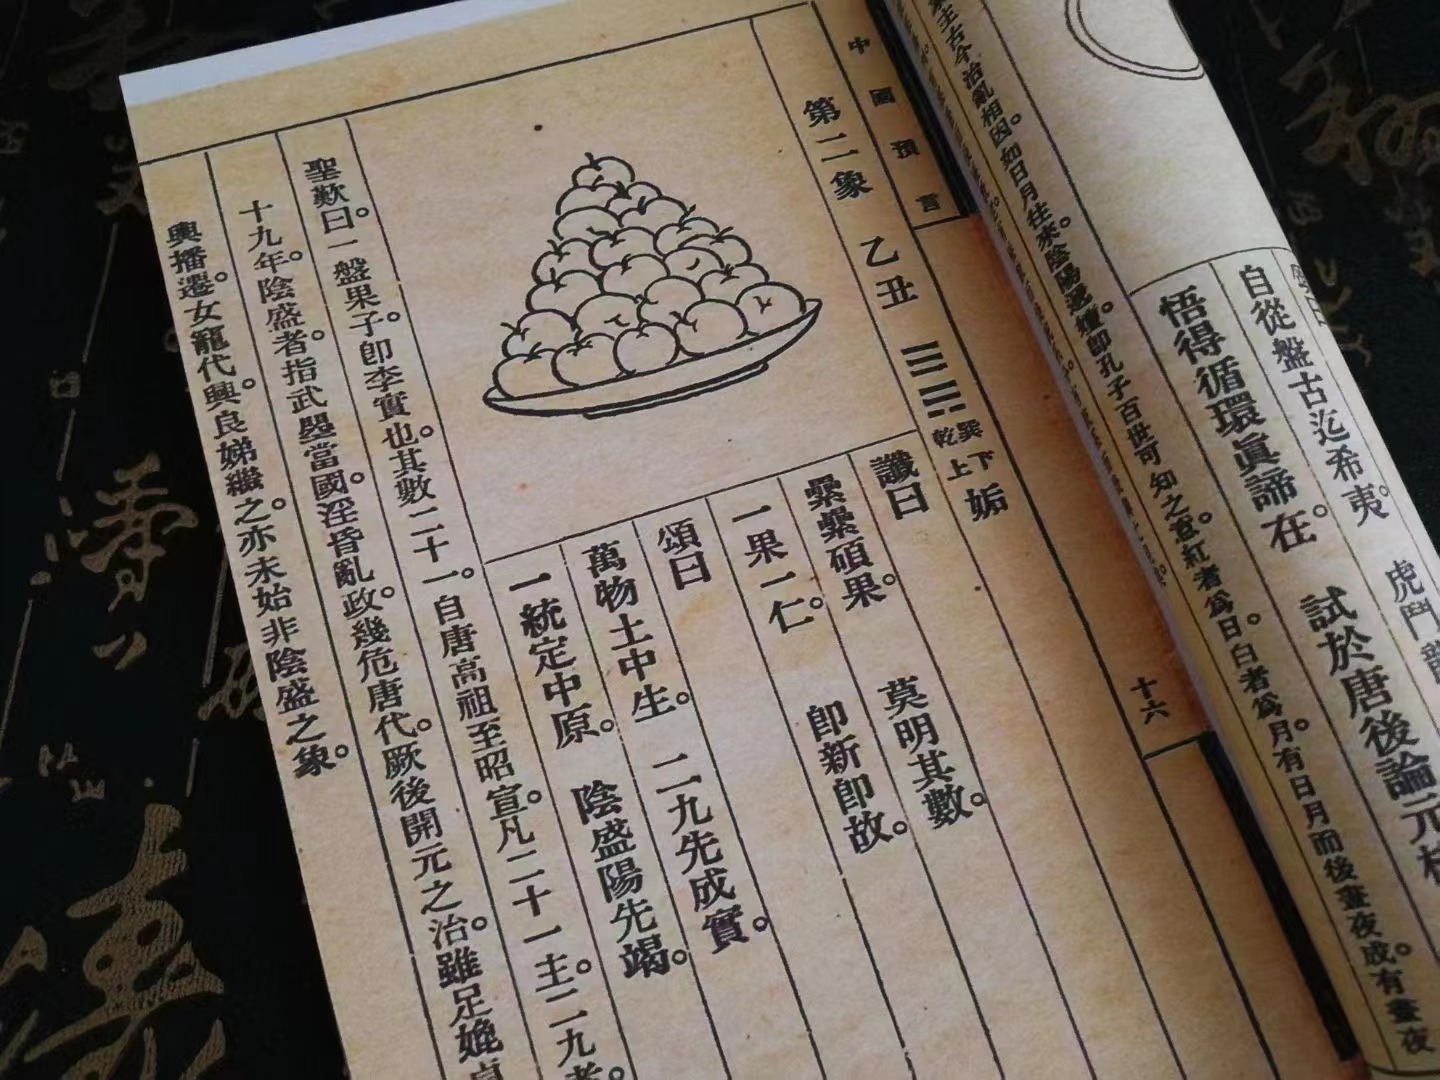 自從盤古迄希夷。　虎鬥龍
悟得循環眞諦在。　試於唐後論元
主古今治亂相因。如日月往來陰陽遞嬗。卽孔子百世可知之意。紅者爲日。白者爲月。有日月而後晝夜成。有晝夜
中國預言
十六
第二象　乙丑　巽下乾上　姤
讖曰
纍纍碩果。　莫明其數。
一果一仁。　卽新卽故。
頌曰
萬物土中生。　二九先成實。
一統定中原。　陰盛陽先竭。
聖歎曰。一盤果子。卽李實也。其數二十一。自唐高祖至昭宣。凡二十一主。二九者。
十九年。陰盛者。指武曌當國。淫昏亂政。幾危唐代。厥後開元之治。雖足媲貞
興播遷。女寵代興。良娣繼之。亦未始非陰盛之象。